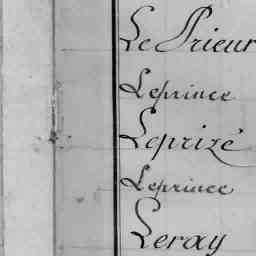 Le Prieur
Leprince
Leprizé
Leprince
Leray